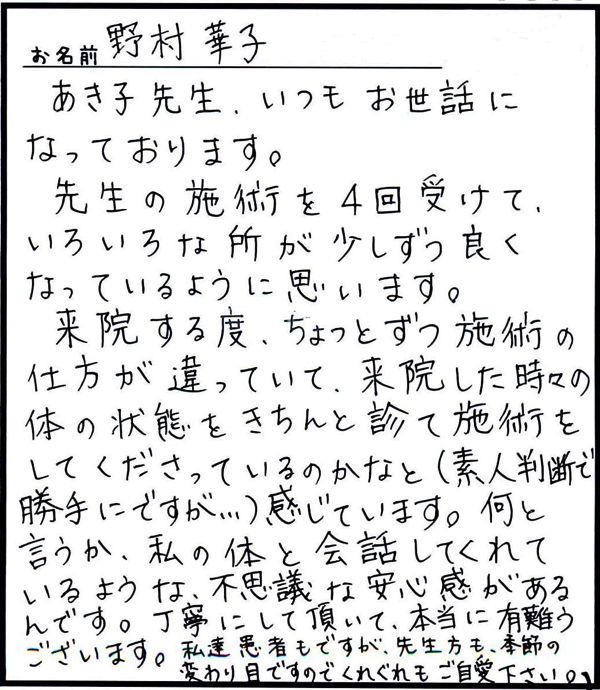 お名前 野村 華子
あき子先生、いつもお世話に
なっております。
先生の施術を4回受けて、
いろいろな所が少しずつ良く
なっているように思います。
来院する度、ちょっとずつ施術の
仕方が違っていて、来院した時々の
体の状態をきちんと診て施術を
してくださっているのかなと(素人判断で
勝手にですが…)感じています。何と
言うか、私の体と会話してくれて
いるような、不思議な安心感がある
んです。丁寧にして頂いて、本当に有難う
ございます。私達患者もですが、先生方も、季節の
変わり目ですのでくれぐれもご自愛下さい。